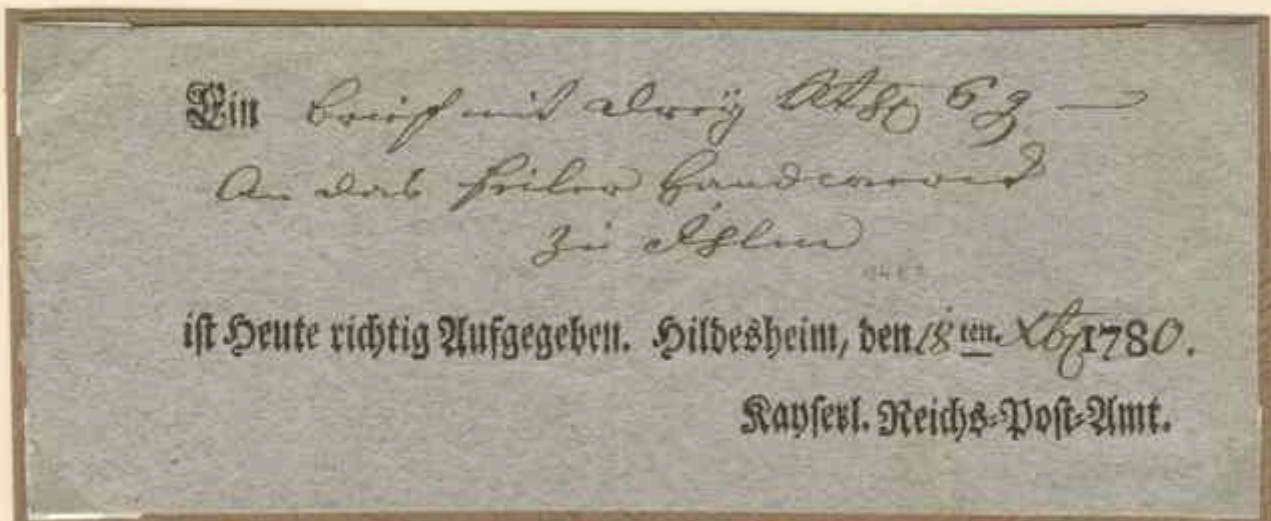 Ein brief mit dreÿ Rthlr 6 g
An das feiler Handwerck
zu
ist Heute richtig Aufgegeben. Hildesheim, den 18 ten. Xbr 1780.
Kayserl. Reichs-Post-Amt.